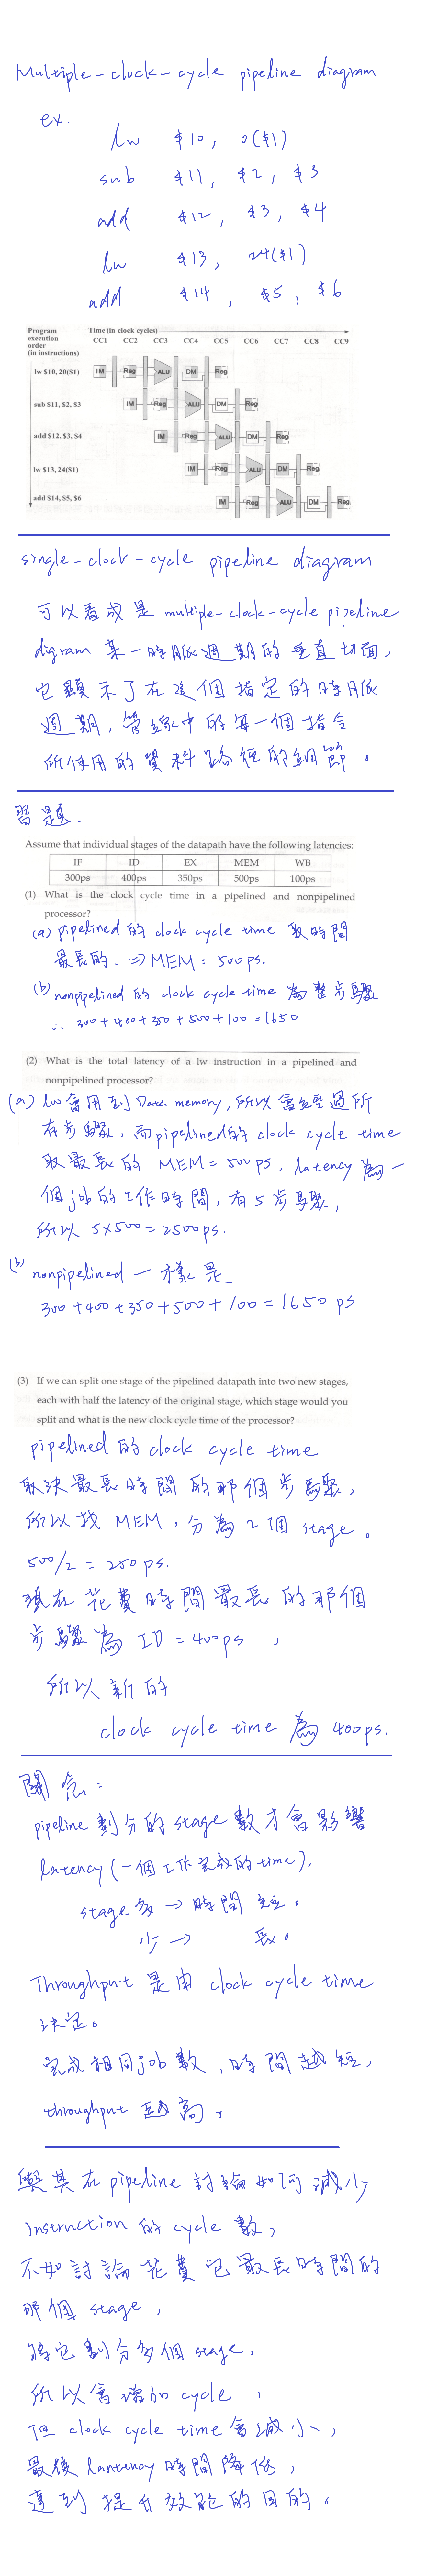 Multiple-clock-cycle pipeline diagram
ex.
lw $10, 0($1)
sub $11, $2, $3
add $12, $3, $4
lw $13, 24($1)
add $14, $5, $6
Program execution order (in instructions)
Time (in clock cycles)
CC1 CC2 CC3 CC4 CC5 CC6 CC7 CC8 CC9
lw $10, 20($1) IM Reg ALU DM Reg
sub $11, $2, $3 IM Reg ALU DM Reg
add $12, $3, $4 IM Reg ALU DM Reg
lw $13, 24($1) IM Reg ALU DM Reg
add $14, $5, $6 IM Reg ALU DM Reg
single-clock-cycle pipeline diagram
可以看成是 multiple-clock-cycle pipeline
digram 某一時脈週期的垂直切面,
它顯示了在這個指定的時脈
週期,管線中的每一個指令
所使用的資料路徑的細節。
習題.
Assume that individual stages of the datapath have the following latencies:
IF ID EX MEM WB
300ps 400ps 350ps 500ps 100ps
(1) What is the clock cycle time in a pipelined and nonpipelined
processor?
(a) pipelined 的 clock cycle time 取時間
最長的. ⇒ MEM = 500ps.
(b) nonpipelined 的 clock cycle time 為整步驟
∴ 300+400+350+500+100=1650
(2) What is the total latency of a lw instruction in a pipelined and
nonpipelined processor?
(a) lw會用到 Data memory, 所以會經過所
有步驟, 而pipelined的 clock cycle time
取最長的 MEM=500ps, latency 為一
個job的工作時間, 有5步驟,
所以 5×500=2500ps.
(b) nonpipelined 一樣是
300+400+350+500+100=1650 ps
(3) If we can split one stage of the pipelined datapath into two new stages,
each with half the latency of the original stage, which stage would you
split and what is the new clock cycle time of the processor?
pipelined 的 clock cycle time
取決最長時間的那個步驟,
所以找 MEM, 分為2個 stage。
500/2 = 250ps.
現在花費時間最長的那個
步驟為 ID=400ps,
所以新的
clock cycle time 為 400ps.
關念:
pipeline 劃分的 stage 數才會影響
latency (一個工作完成的time).
stage 多 → 時間 短.
少 → 長。
Throughput 是由 clock cycle time
決定。
完成相同job數, 時間越短,
throughput 越高。
與其在 pipeline 討論如何減少
instruction 的 cycle 數,
不如討論花費它最長時間的
那個 stage,
將它劃分多個 stage,
所以會增加 cycle,
但 clock cycle time 會減小,
最後 lantency 時間降低,
達到提升效能的目的。